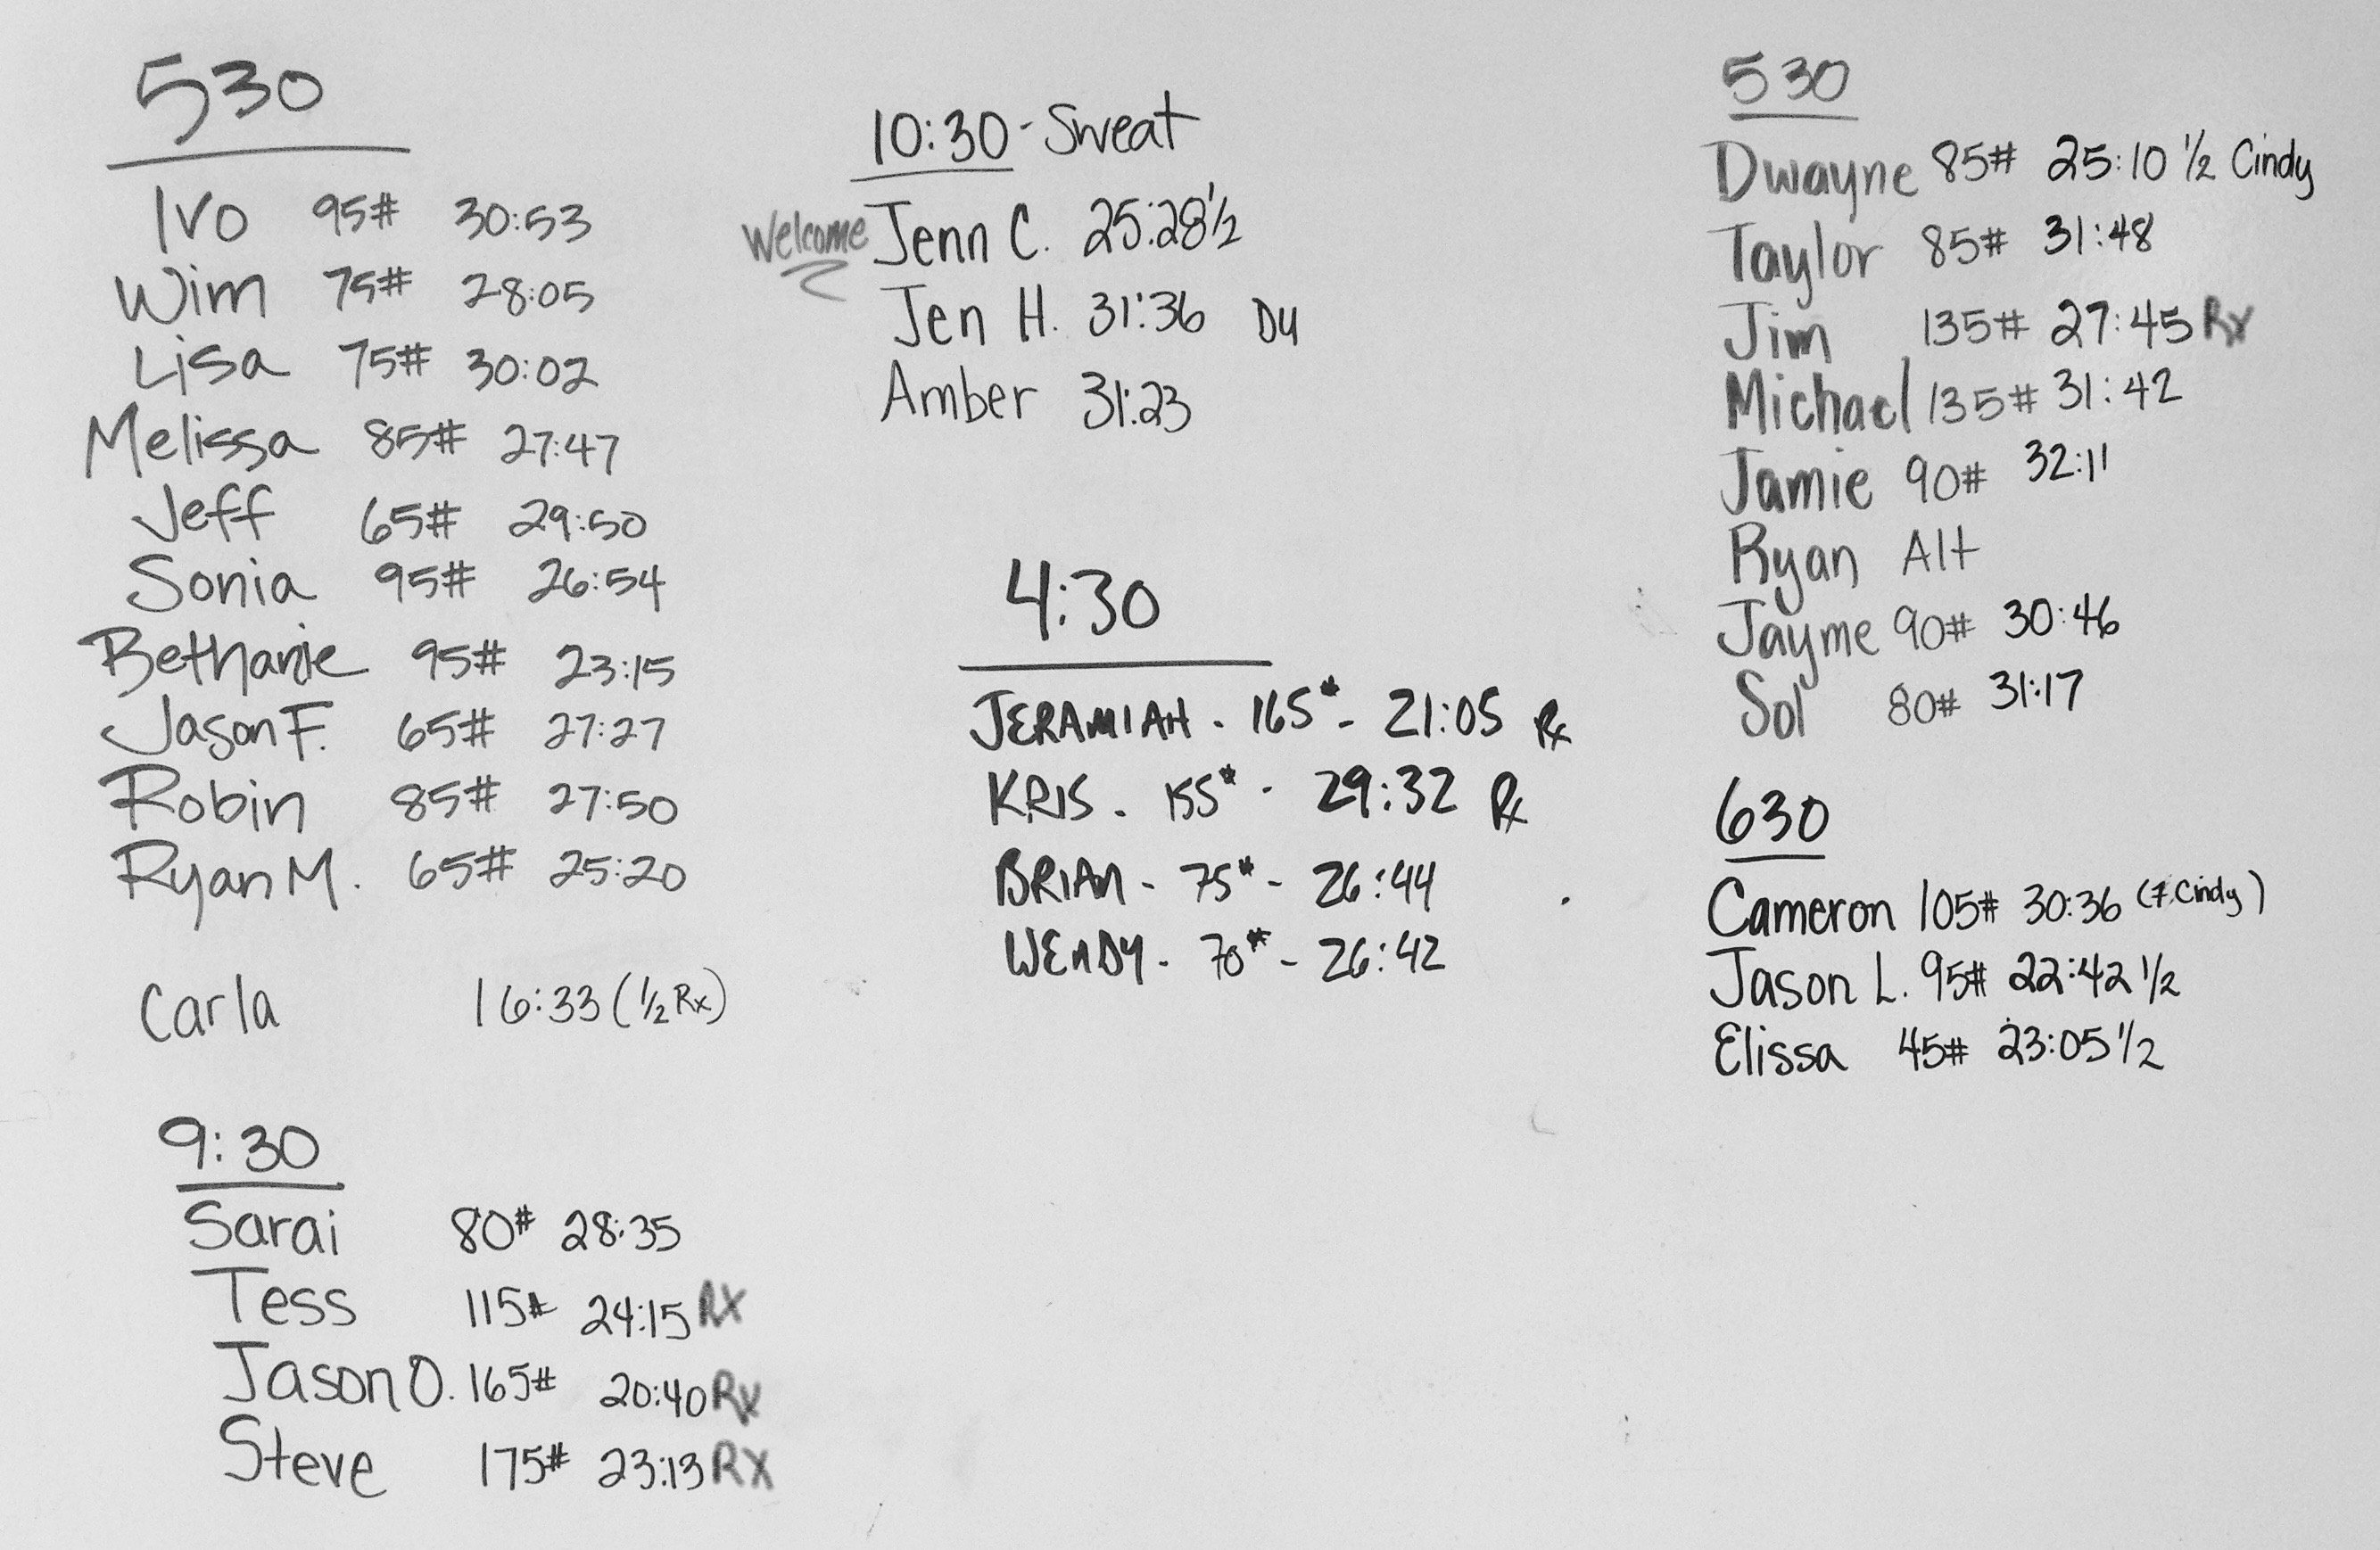 530
Ivo 95# 30:53
Wim 75# 28:05
Lisa 75# 30:02
Melissa 85# 27:47
Jeff 65# 29:50
Sonia 95# 26:54
Bethanie 95# 23:15
Jason F. 65# 27:27
Robin 85# 27:50
Ryan M. 65# 25:20
Carla 16:33 (1/2 Rx)
9:30
Sarai 80# 28:35
Tess 115# 24:15 RX
Jason O. 165# 20:40 Rx
Steve 175# 23:13 RX
10:30 - Sweat
Welcome Jenn C. 25:28 1/2
Jen H. 31:36 DU
Amber 31:23
4:30
JERAMIAH - 165# - 21:05 Rx
KRIS - 155# - 29:32 Rx
BRIAN - 75# - 26:44
WENDY - 70# - 26:42
530
Dwayne 85# 25:10 1/2 Cindy
Taylor 85# 31:48
Jim 135# 27:45 Rx
Michael 135# 31:42
Jamie 90# 32:11
Ryan Alt
Jayme 90# 30:46
Sol 80# 31:17
630
Cameron 105# 30:36 (7. Cindy)
Jason L. 95# 22:42 1/2
Elissa 45# 23:05 1/2